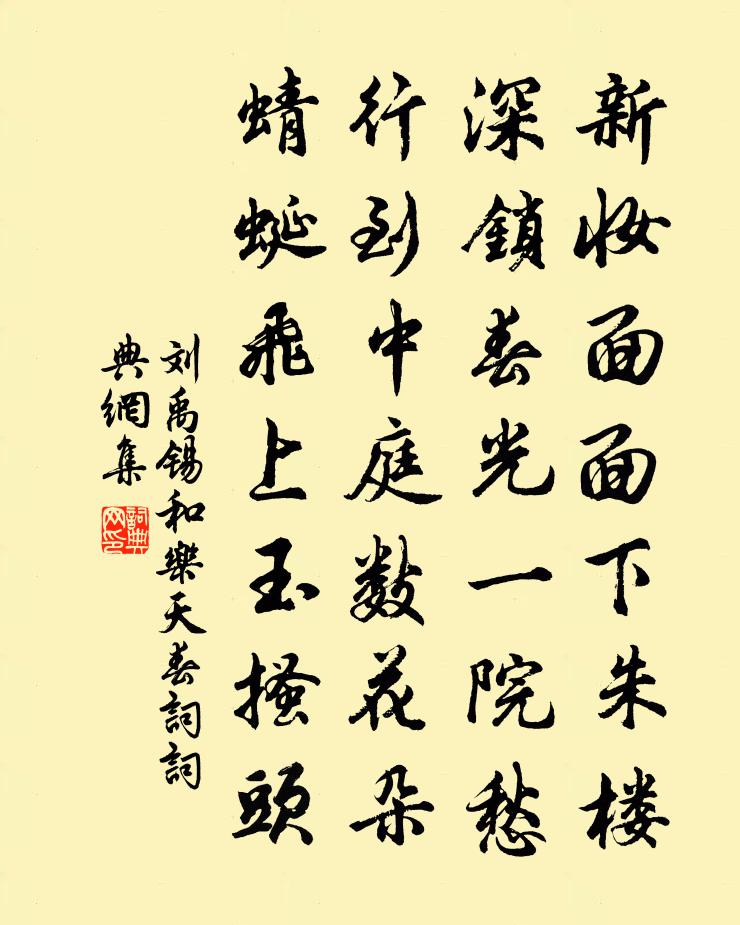 新妆面面下朱楼
深鎖春光一院愁
行到中庭数花朵
蜻蜓飛上玉搔頭
刘禹锡和樂天春詞詞
典網集
詞典
网印